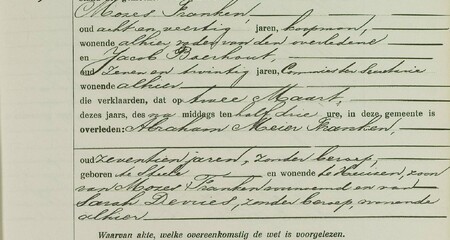 Mozes Franken,
oud acht en veertig jaren, koopman,
wonende alhier, vader van den overledene
en Jacob Boerhout,
oud zeven en twintig jaren, Commissies Secretarie
wonende alhier
die verklaarden, dat op twee Maart
dezes jaars, des na middags ten half drie ure, in deze gemeente is
overleden: Abraham Meier Franken,
oud zeventien jaren, zonder beroep,
geboren te Steele en wonende te , zoon
van Mozes Franken voornoemd en van
Sarah Devries, zonder beroep, wonende
alhier
Waarvan akte, welke overeenkomstig de wet is voorgelezen.